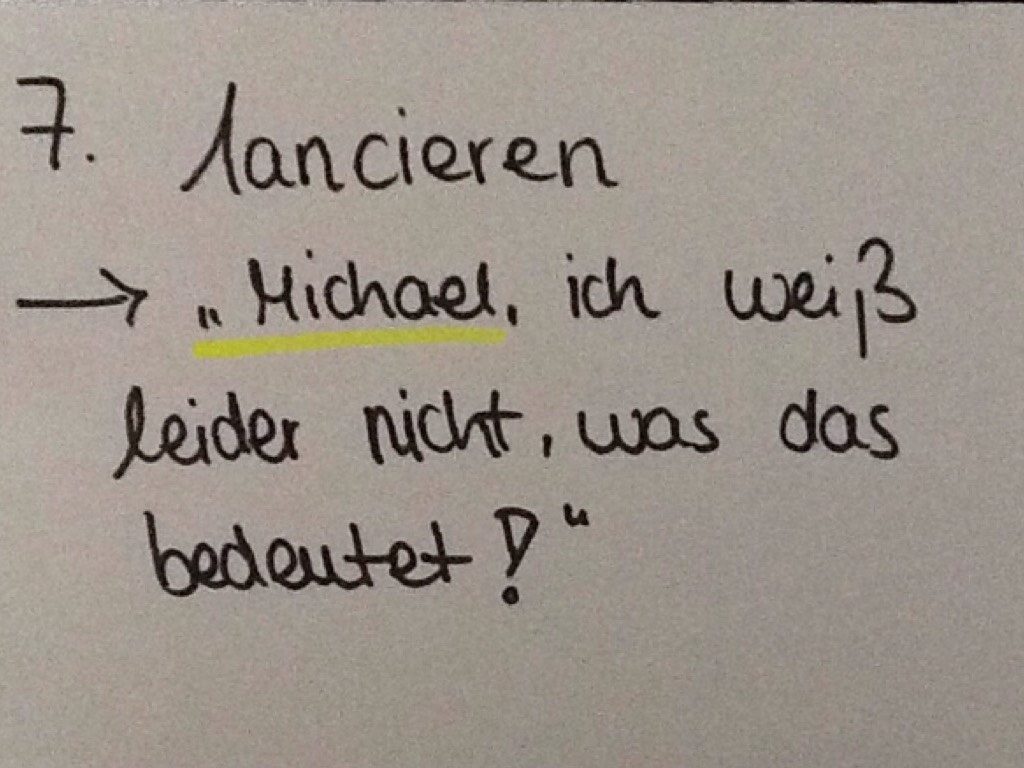 7. lancieren
→ „Michael, ich weiß
leider nicht, was das
bedeutet!“